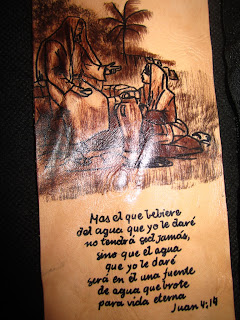 Mas el que bebiere
del agua que yo le daré
no tendrá sed jamás,
sino que el agua
que yo le daré
será en él una fuente
de agua que brote
para vida eterna
Juan 4:14